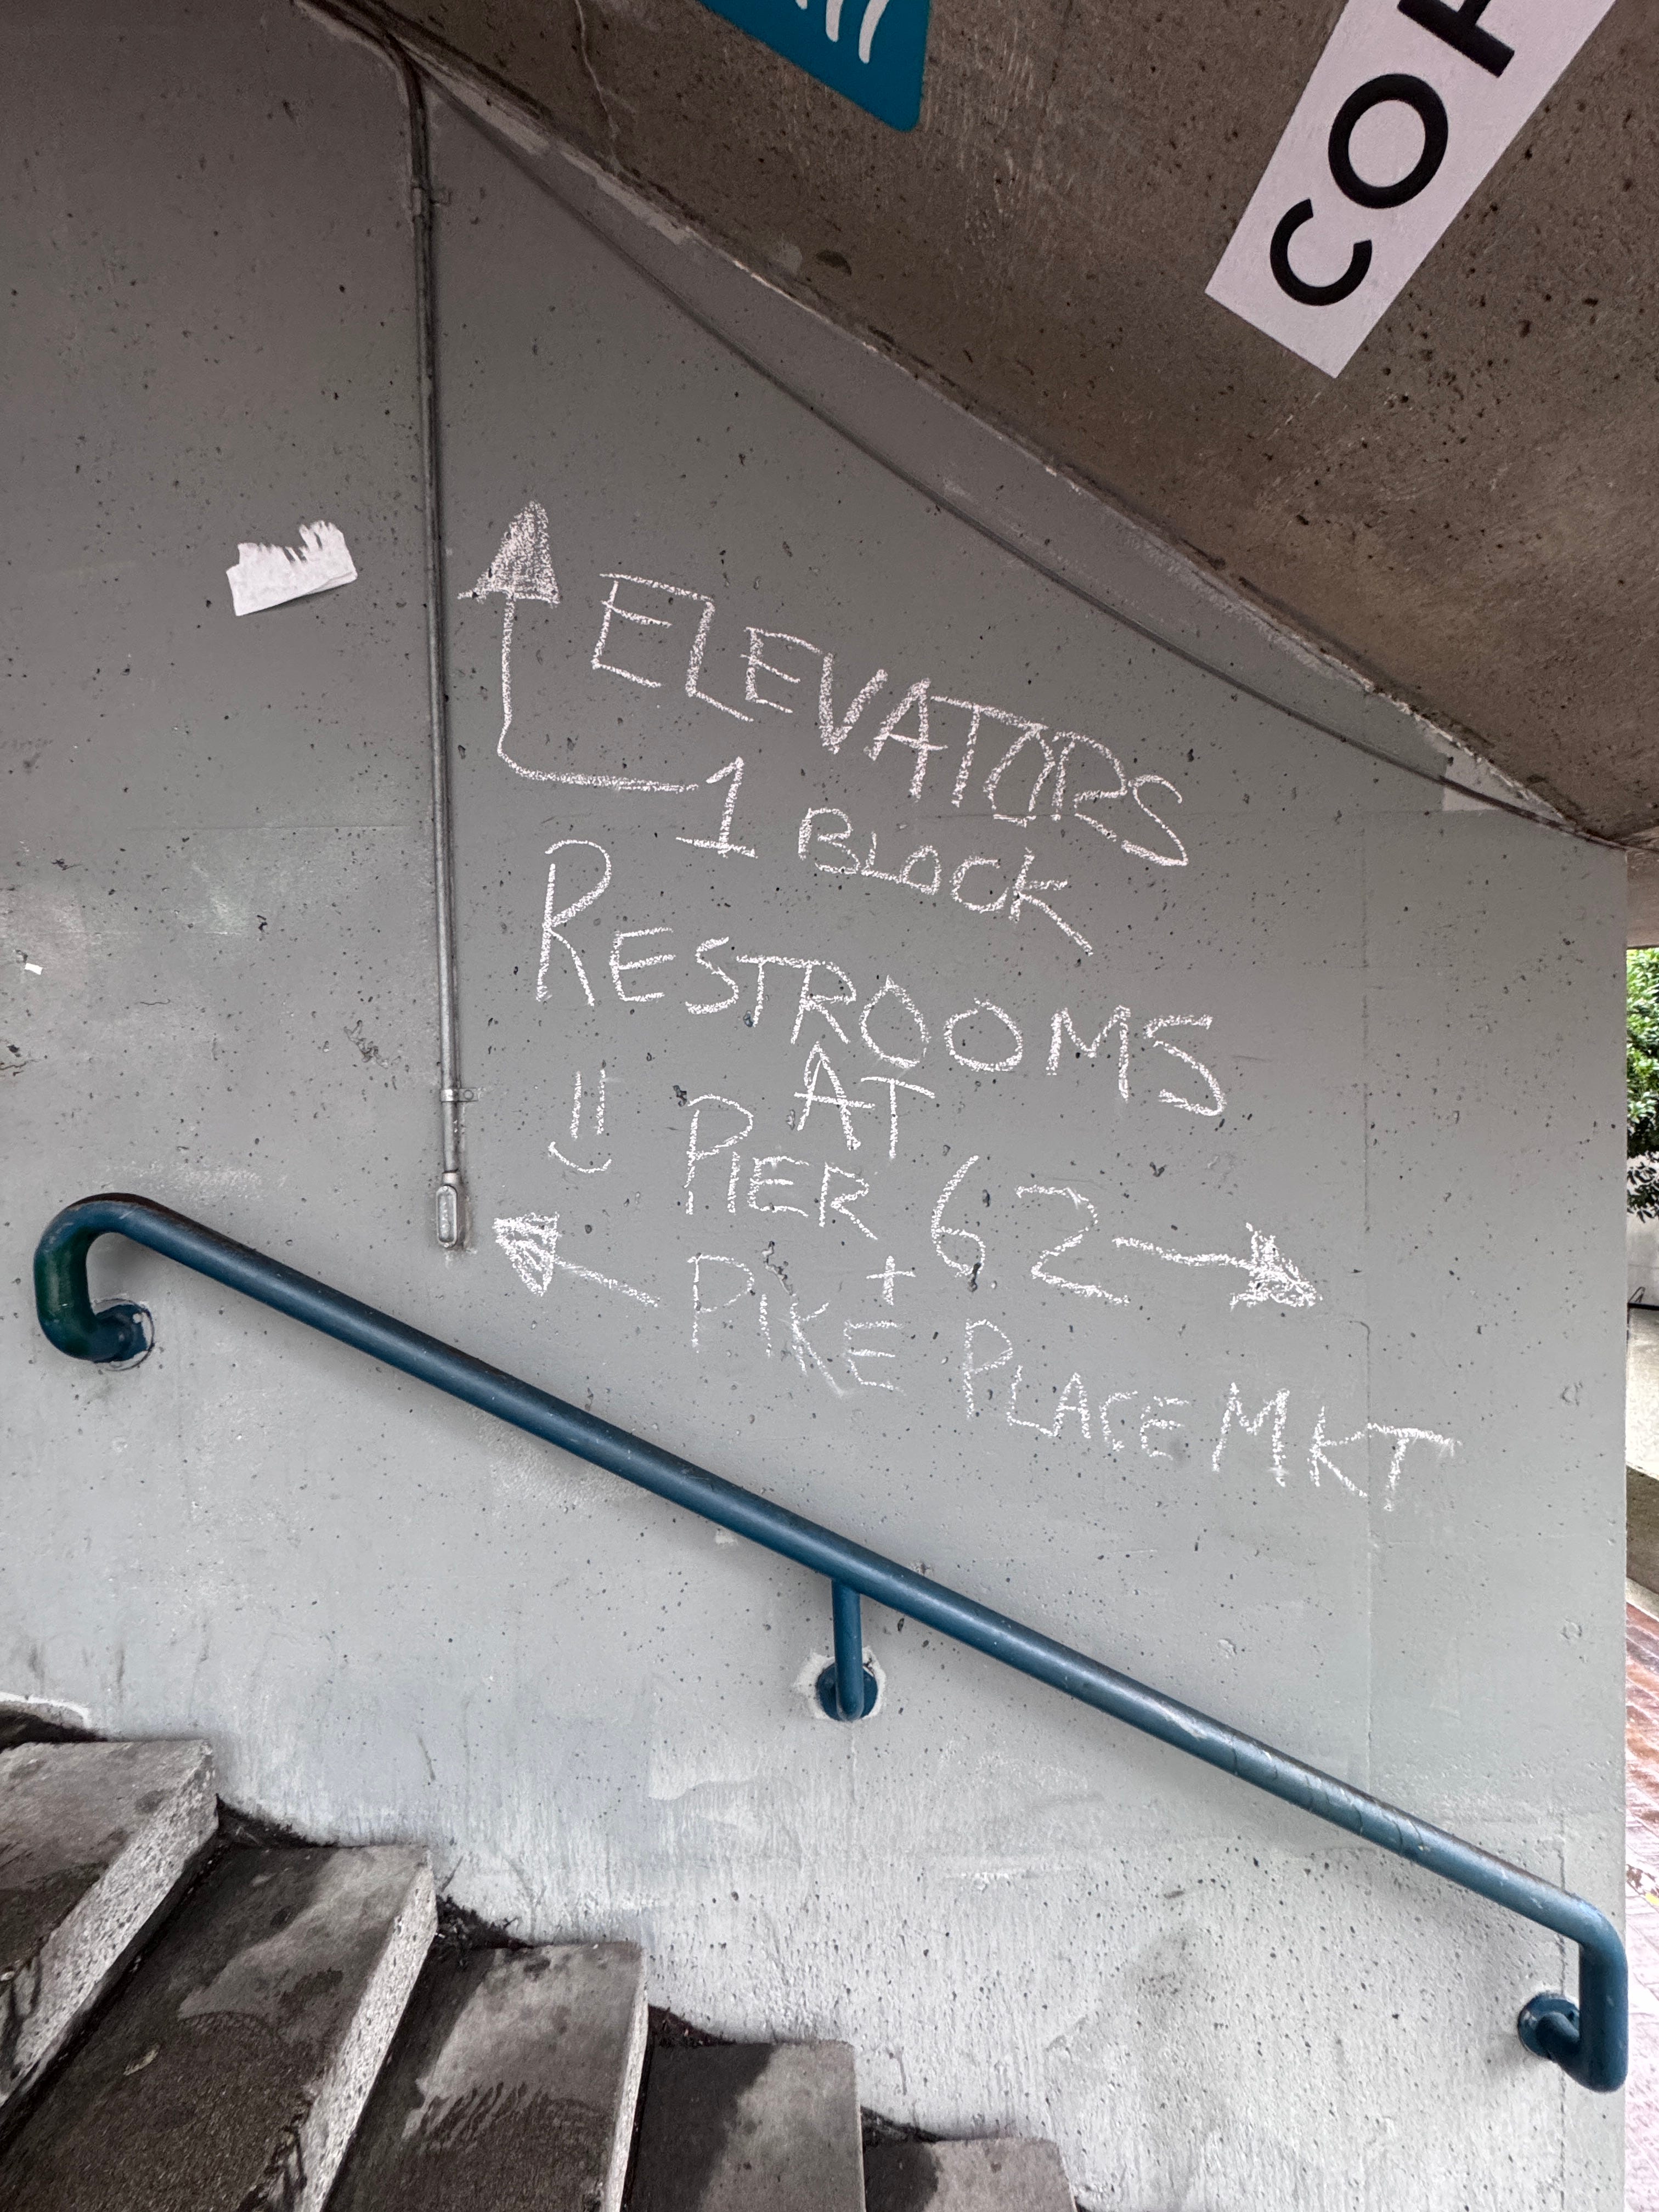 ELEVATORS
1 BLOCK
RESTROOMS
AT
PIER 62
+
PIKE PLACE MKT